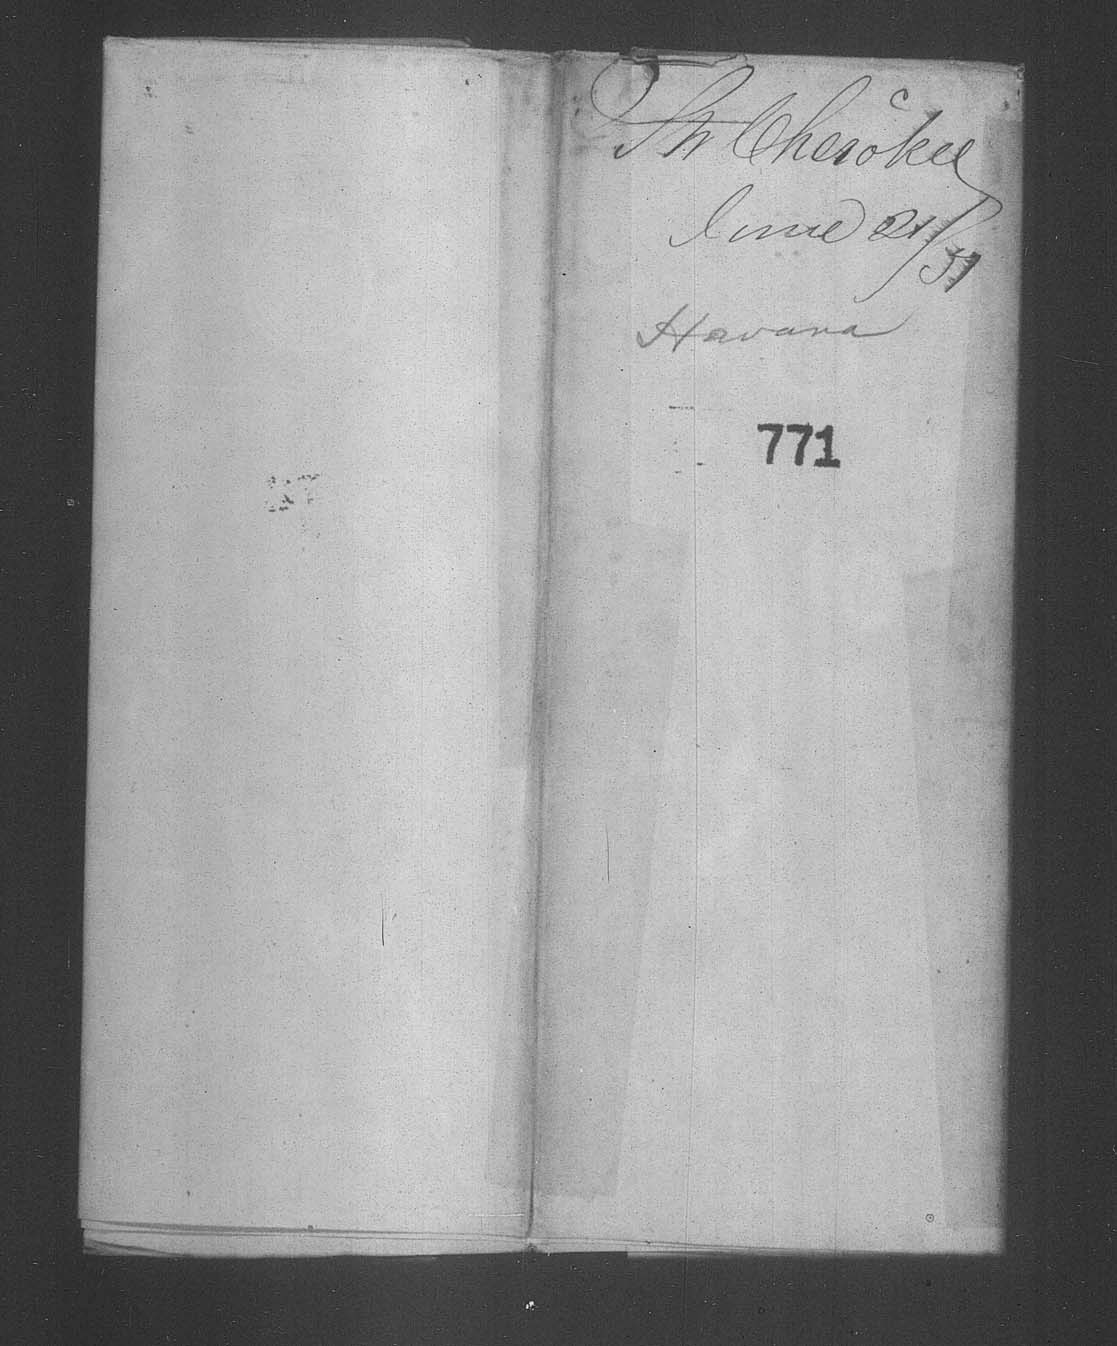 Str Cherokee
June 21/51
Havana
771